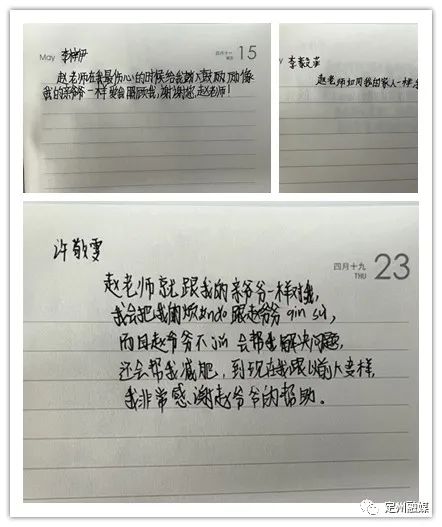 May
四月十一
WED
15
赵老师在我最伤心的时候给我鼓励,就像
我的亲爷爷一样照顾我,谢谢您,赵老师!
赵老师如同我的家人一样
四月十九
THU
23
许敬雯
赵老师就跟我的亲爷爷一样对我,
我会把我的烦恼跟赵爷爷qin sù,
而且赵爷爷不jǐn会帮我解决问题,
还会帮我减肥,到现在我跟以前大变样,
我非常感谢赵爷爷的帮助。
定州融媒